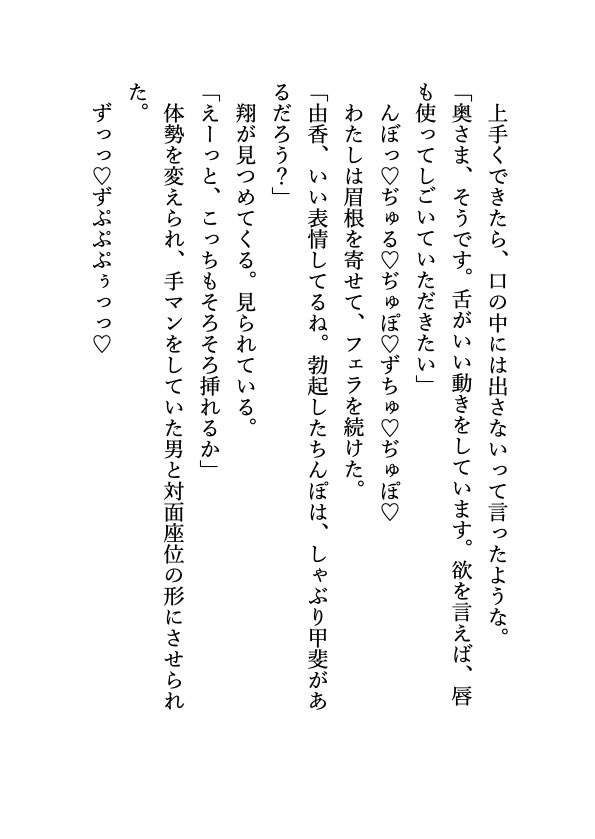 上手くできたら、口の中には出さないって言ったような。
「奥さま、そうです。舌がいい動きをしています。欲を言えば、唇
も使ってしごいていただきたい」
んぼっ♡ぢゅる♡ぢゅぽ♡ずちゅ♡ぢゅぽ♡
わたしは眉根を寄せて、フェラを続けた。
「由香、いい表情してるね。勃起したちんぽは、しゃぶり甲斐があ
るだろう？」
翔が見つめてくる。見られている。
「えーっと、こっちもそろそろ挿れるか」
体勢を変えられ、手マンをしていた男と対面座位の形にさせられ
た。
ずっっ♡ずぷぷぷぅっっ♡